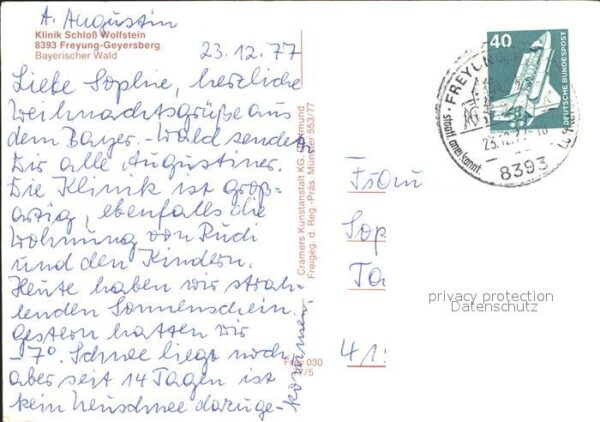 A. Augustin
Klinik Schloß Wolfstein
8393 Freyung-Geyersberg
Bayerischer Wald
23.12.77
Liebe Sophie, herzliche
Weihnachtsgrüße aus
dem Bayer.-Wald senden
Dir alle Augustiner.
Die Klinik ist groß-
artig, ebenfalls die
Wohnung von Rudi
und den Kindern.
Heute haben wir strah-
lenden Sonnenschein.
Gestern hatten wir
-7°. Schnee liegt noch
aber seit 14 Tagen ist
kein Neuschnee dazuge-
kommen.
Cramers Kunstanstalt KG, Dortmund
Freigeg. d. Reg.-Präs. Münster 553/77
030
7/5
40
DEUTSCHE BUNDESPOST
FREYUNG
8393
Frau
Sop
Ta
privacy protection
Datenschutz